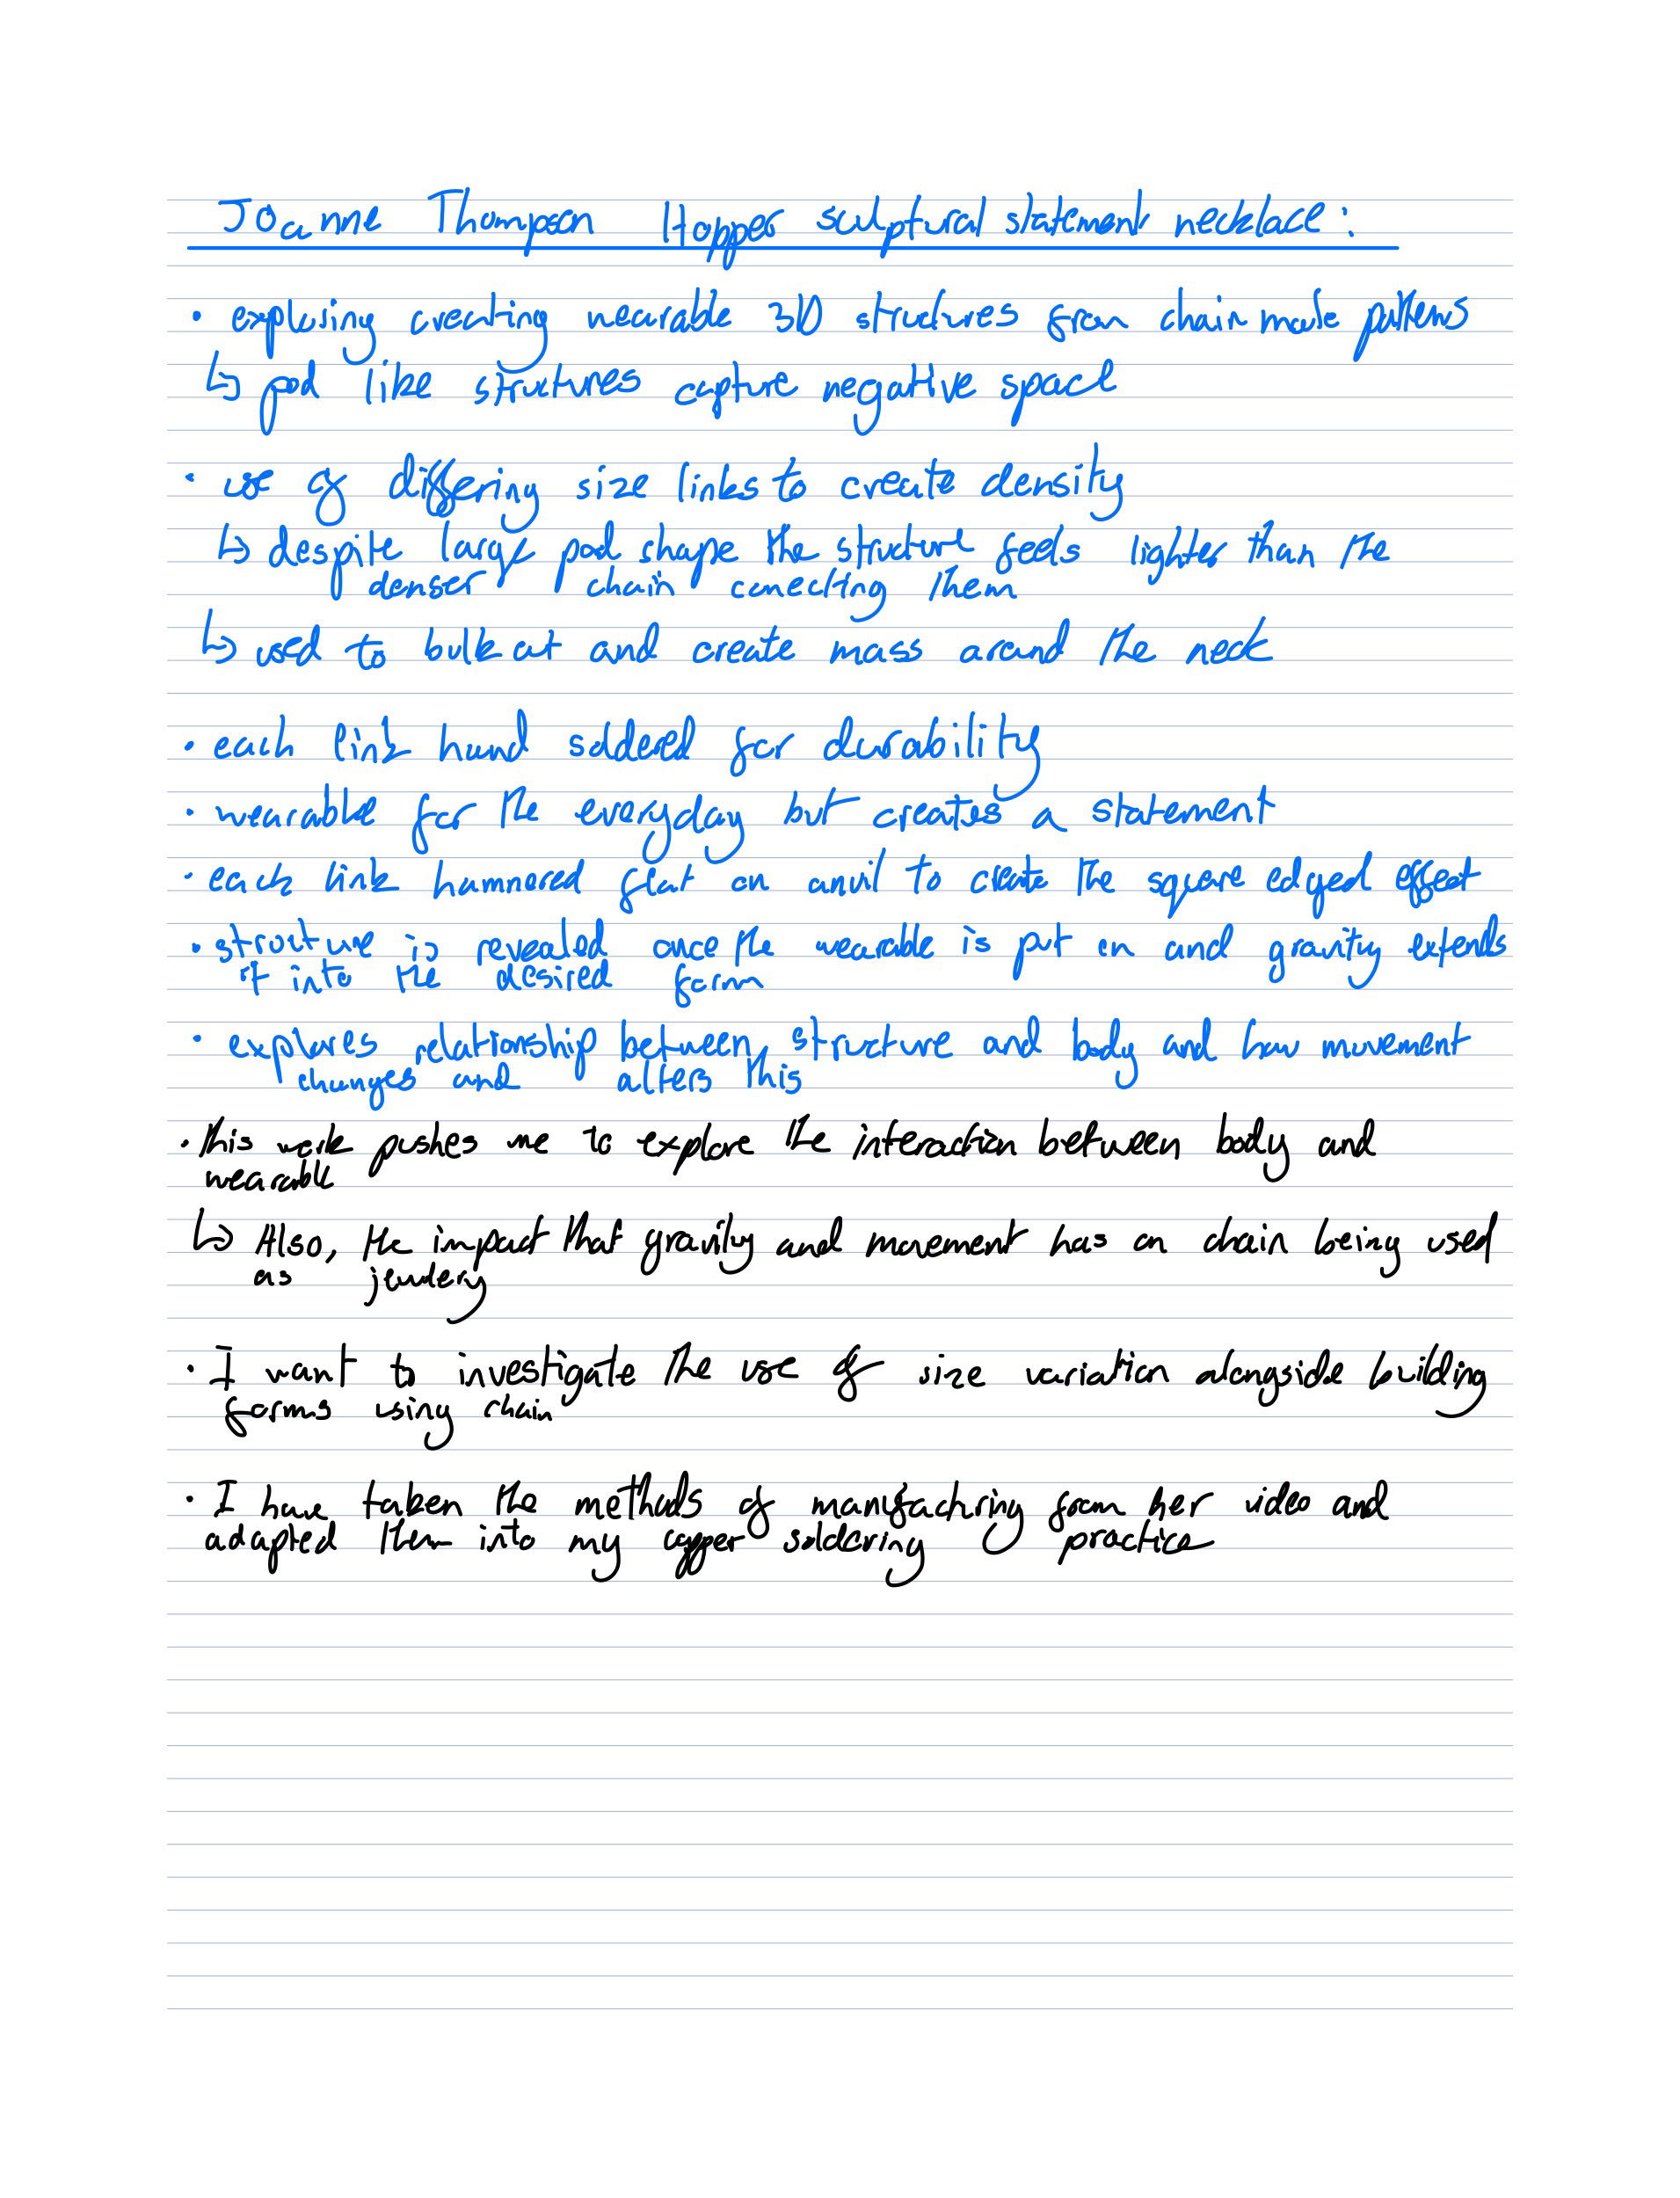 Joanne Thompson Hopper sculptural statement necklace:
• exploring creating wearable 3D structures from chain maile patterns
↳ pod like structures capture negative space
• use of differing size links to create density
↳ despite large pod shape the structure feels lighter than the
denser chain conecting them
↳ used to bulk out and create mass around the neck
• each link hand soldered for durability
• wearable for the everyday but creates a statement
• each link hammered flat on anvil to create the square edged effect
• structure is revealed once the wearable is put on and gravity extends
it into the desired form
• explores relationship between structure and body and how movement
changes and alters this
• this work pushes me to explore the interaction between body and
wearable
↳ Also, the impact that gravity and movement has on chain being used
as jewlery
• I want to investigate the use of size variation alongside building
forms using chain
• I have taken the methods of manufacturing from her video and
adapted them into my copper soldering practice